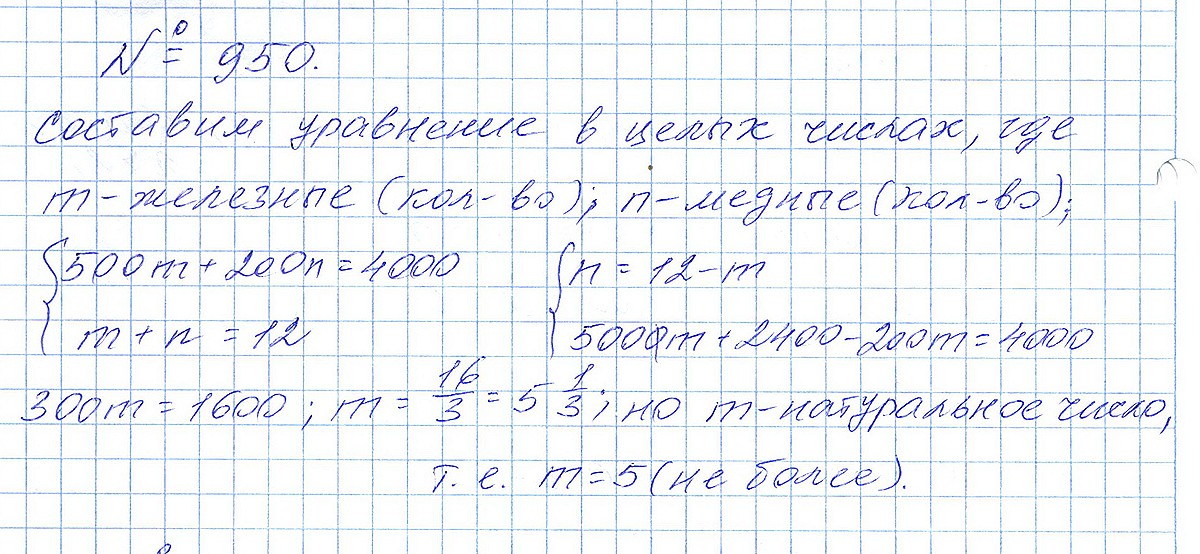 № 950.
составим уравнение в целых числах, где
m-железные (кол-во); n-медные (кол-во);
{500m + 200n = 4000 {n = 12 - m
m + n = 12 5000m + 2400 - 200m = 4000
300m = 1600; m = 16/3 = 5 1/3; но m-натуральное число,
т. е. m = 5 (не более).